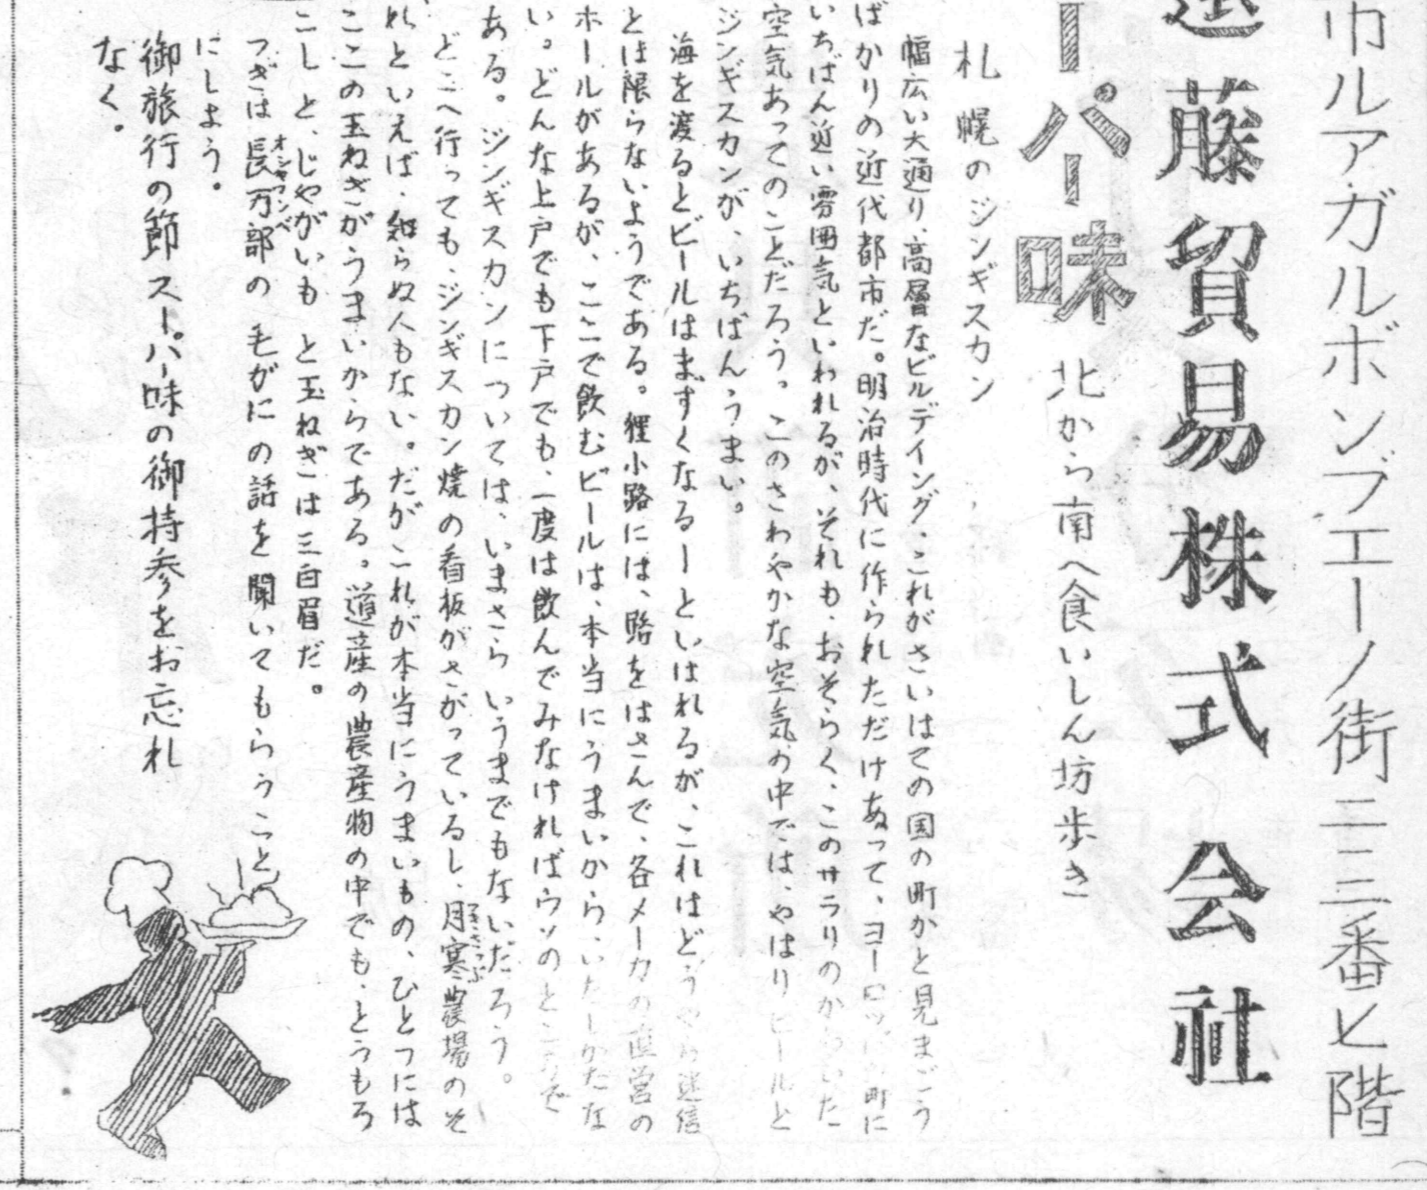 市ルアガルボンブエーノ街二二三番ヒ階
遠藤貿易株式会社
ーパー味
北から南へ食いしん坊歩き
札幌のジンギスカン
幅広い大通り、高層なビルデイング、これがさいはての国の町かと見まごう
ばかりの近代都市だ。明治時代に作られただけあって、ヨーロッパの町に
いちばん近い雰囲気といわれるが、それも、おそらく、このサラリのかわいた
空気あってのことだろう。このさわやかな空気の中では、やはりビールと
ジンギスカンが、いちばんうまい。
海を渡るとビールはまずくなるーといはれるが、これはどうやら迷信
とは限らないようである。狸小路には、路をはさんで、各メーカの直営の
ホールがあるが、ここで飲むビールは、本当にうまいから、いたしかたな
い。どんな上戸でも下戸でも、一度は飲んでみなければウソのところで
ある。ジンギスカンについては、いまさらいうまでもないだろう。
どこへ行っても、ジンギスカン焼の看板がさがっているし、月寒農場のそ
れといえば、知らぬ人もない。だがこれが本当にうまいもの、ひとつには
ここの玉ねぎがうまいからである。道産の農産物の中でも、とうもろ
こしと、じゃがいもと玉ねぎは三白眉だ。
つぎは長万部の毛がにの話を聞いてもらうこと
にしよう。
御旅行の節スーパー味の御持参をお忘れ
なく。